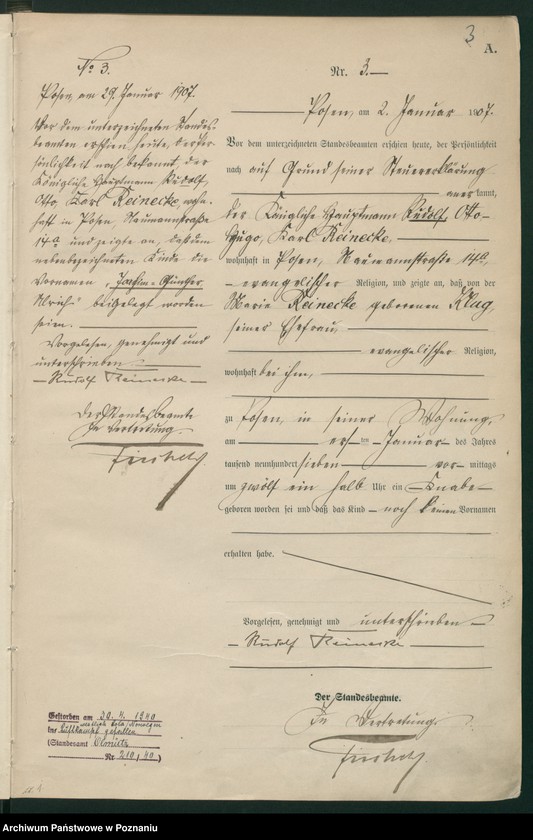 3
A.
Nr. 3.
Posen, am 2. Januar 1907.
Vor dem unterzeichneten Standesbeamten erschien heute, der Persönlichkeit
nach auf Grund seiner Steuererklärung
anerkannt,
der Königliche Hauptmann Rudolf Otto
Hugo, Karl Reinecke
wohnhaft in Posen, Naumannstraße 14a,
evangelischer Religion, und zeigte an, daß von der
Marie Reinecke geborenen Klug,
seiner Ehefrau,
evangelischer Religion,
wohnhaft bei ihm,
zu Posen, in seiner Wohnung,
am ersten Januar des Jahres
tausend neunhundert sieben vor mittags
um zwölf ein halb Uhr ein Knabe
geboren worden sei und daß das Kind noch keinen Vornamen
erhalten habe.
Vorgelesen, genehmigt und unterschrieben
Rudolf Reinecke
Der Standesbeamte.
In Vertretung
No 3.
Posen, am 29. Januar 1907.
Vor dem unterzeichneten Standes
beamten erschien heute, der Per
sönlichkeit nach bekannt, der
Königliche Hauptmann Rudolf,
Otto, Karl Reinecke, wohn
haft in Posen, Naumannstraße
14a und zeigte an, daß dem
nebenbezeichneten Kinde die
Vornamen „Joachim Günther
Ulrich" beigelegt worden
seien.
Vorgelesen, genehmigt und
unterschrieben
Rudolf Reinecke
Der Standesbeamte
In Vertretung
Gestorben am 30. 4. 1940
im Luftkampf gefallen
(Standesamt
Nr. 210/40)
Archiwum Państwowe w Poznaniu
szukajwarchiwach.pl